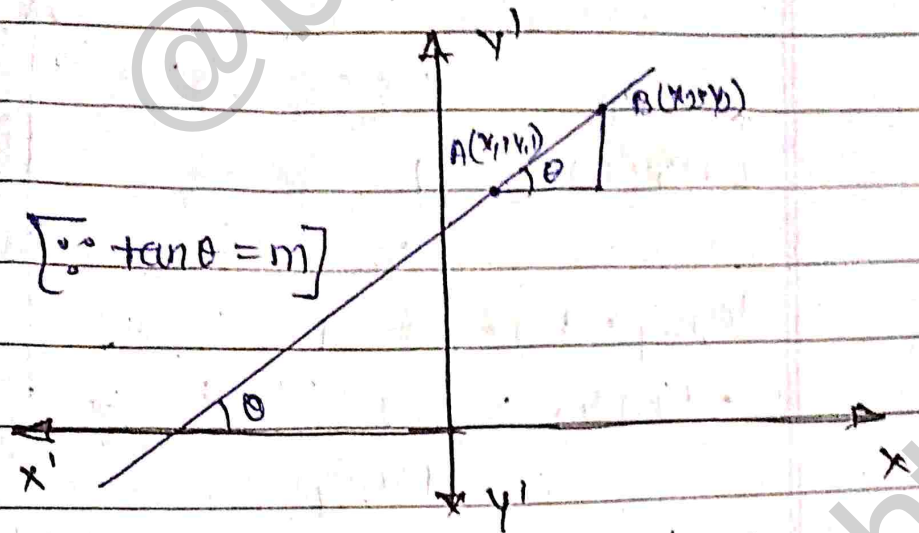 y'
B(x₂, y₂)
A(x₁, y₁)
θ
[∵ tanθ = m]
θ
x'
x
y'